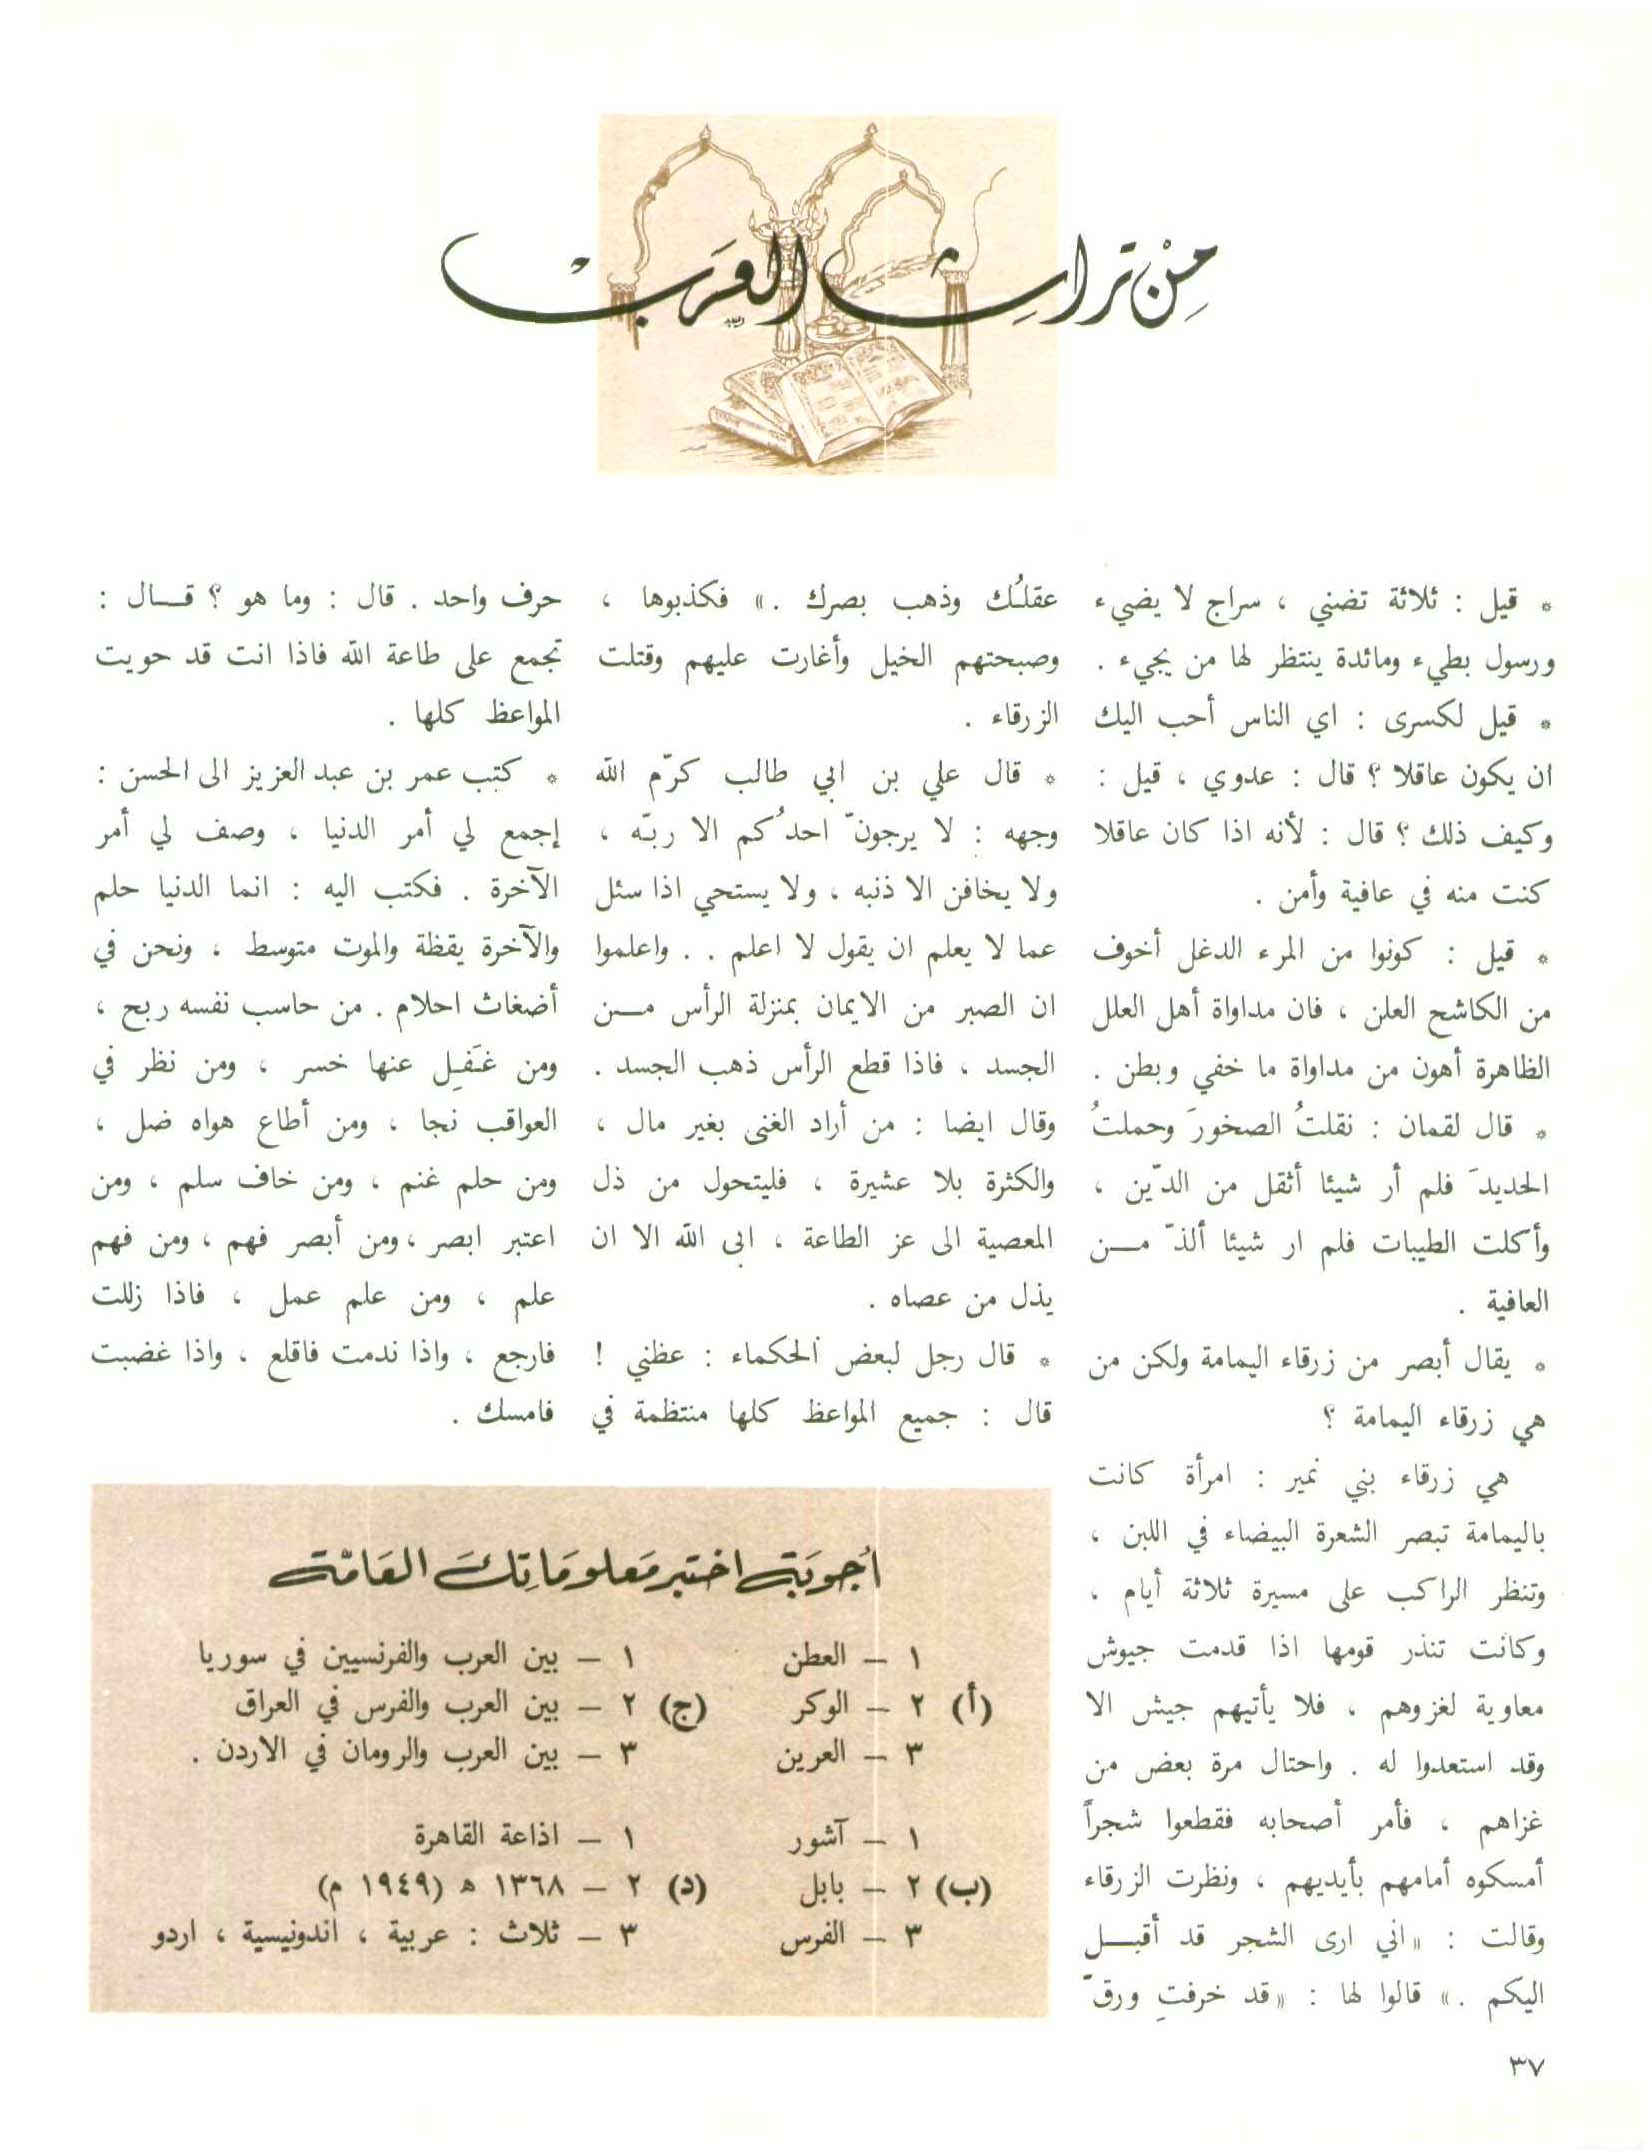 مِنْ تراث العَرَب
* قيل : ثلاثة تضني ، سراج لا يضيء
ورسول بطيء ومائدة ينتظر لها من يجيء .
* قيل لكسرى : اي الناس أحب اليك
ان يكون عاقلا ؟ قال : عدوي ، قيل :
وكيف ذلك ؟ قال : لأنه اذا كان عاقلا
كنت منه في عافية وأمن .
* قيل : كونوا من المرء الدغل أخوف
من الكاشح العلن ، فان مداواة أهل العلل
الظاهرة أهون من مداواة ما خفي وبطن .
* قال لقمان : نقلتُ الصخورَ وحملتُ
الحديدَ فلم أر شيئا أثقل من الدّين ،
وأكلت الطيبات فلم ار شيئا ألذّ مـــن
العافية .
* يقال أبصر من زرقاء اليمامة ولكن من
هي زرقاء اليمامة ؟
هي زرقاء بني نمير : امرأة كانت
باليمامة تبصر الشعرة البيضاء في اللبن ،
وتنظر الراكب على مسيرة ثلاثة أيام ،
وكانت تنذر قومها اذا قدمت جيوش
معاوية لغزوهم ، فلا يأتيهم جيش الا
وقد استعدوا له . واحتال مرة بعض من
غزاهم ، فأمر أصحابه فقطعوا شجراً
أمسكوه أمامهم بأيديهم ، ونظرت الزرقاء
وقالت : « اني ارى الشجر قد أقبـــل
اليكم . » قالوا لها : « قد خرفتِ ورقّ
عقلـُك وذهب بصرك . » فكذبوها ،
وصبحتهم الخيل وأغارت عليهم وقتلت
الزرقاء .
* قال علي بن ابي طالب كرّم الله
وجهه : لا يرجونّ احدُكم الا ربّه ،
ولا يخافن الا ذنبه ، ولا يستحي اذا سئل
عما لا يعلم ان يقول لا اعلم . . واعلموا
ان الصبر من الايمان بمنزلة الرأس مـــن
الجسد ، فاذا قطع الرأس ذهب الجسد .
وقال ايضا : من أراد الغنى بغير مال ،
والكثرة بلا عشيرة ، فليتحول من ذل
المعصية الى عز الطاعة ، ابى الله الا ان
يذل من عصاه .
* قال رجل لبعض الحكماء : عظني !
قال : جميع المواعظ كلها منتظمة في
حرف واحد . قال : وما هو ؟ قـــال :
تجمع على طاعة الله فاذا انت قد حويت
المواعظ كلها .
* كتب عمر بن عبد العزيز الى الحسن :
إجمع لي أمر الدنيا ، وصف لي أمر
الآخرة . فكتب اليه : انما الدنيا حلم
والآخرة يقظة والموت متوسط ، ونحن في
أضغاث احلام . من حاسب نفسه ربح ،
ومن غـَفـِل عنها خسر ، ومن نظر في
العواقب نجا ، ومن أطاع هواه ضل ،
ومن حلم غنم ، ومن خاف سلم ، ومن
اعتبر ابصر ، ومن أبصر فهم ، ومن فهم
علم ، ومن علم عمل ، فاذا زللت
فارجع ، واذا ندمت فاقلع ، واذا غضبت
فامسك .
أجوبَة اختبر مَعلومَاتِكَ العَامّة
١ – العطن
(أ) ٢ – الوكر
٣ – العرين
١ – بين العرب والفرنسيين في سوريا
(ج) ٢ – بين العرب والفرس في العراق
٣ – بين العرب والرومان في الاردن .
١ – آشور
(ب) ٢ – بابل
٣ – الفرس
١ – اذاعة القاهرة
(د) ٢ – ١٣٦٨ ه (١٩٤٩ م)
٣ – ثلاث : عربية ، اندونيسية ، اردو
٣٧